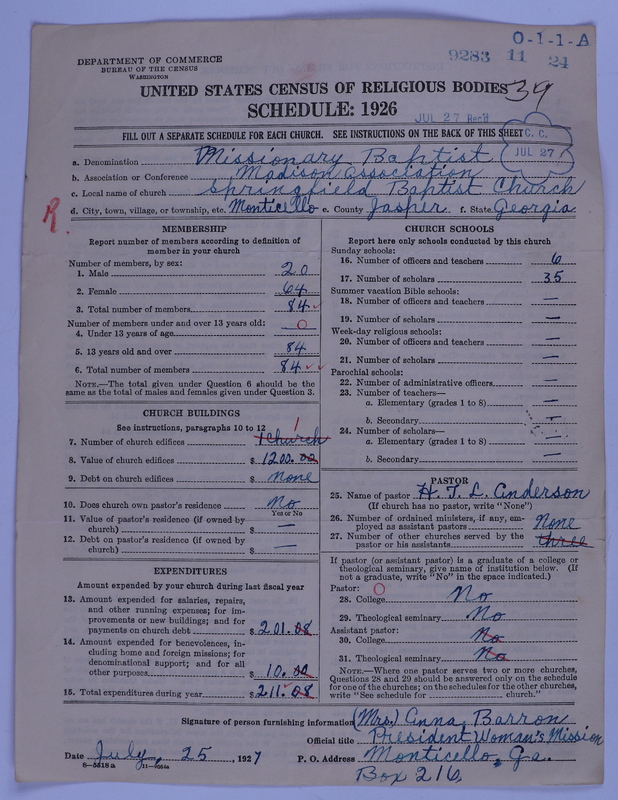 O-1-1-A
9283 11 24
DEPARTMENT OF COMMERCE
BUREAU OF THE CENSUS
WASHINGTON
UNITED STATES CENSUS OF RELIGIOUS BODIES 39
SCHEDULE: 1926
JUL 27 Rec'd
FILL OUT A SEPARATE SCHEDULE FOR EACH CHURCH. SEE INSTRUCTIONS ON THE BACK OF THIS SHEET
C. C.
JUL 27
a. Denomination Missionary Baptist
b. Association or Conference Madison Association
c. Local name of church Springfield Baptist Church
d. City, town, village, or township, etc. Monticello e. County Jasper f. State Georgia
R.
MEMBERSHIP
Report number of members according to definition of
member in your church
Number of members, by sex:
1. Male 20
2. Female 64
3. Total number of members 84
Number of members under and over 13 years old:
4. Under 13 years of age 0
5. 13 years old and over 84
6. Total number of members 84
NOTE.—The total given under Question 6 should be the
same as the total of males and females given under Question 3.
CHURCH BUILDINGS
See instructions, paragraphs 10 to 12
1
7. Number of church edifices 1 Church
8. Value of church edifices $ 1200.00
9. Debt on church edifices $ None
10. Does church own pastor's residence? No
Yes or No
11. Value of pastor's residence (if owned by
church) $ —
12. Debt on pastor's residence (if owned by
church) $ —
EXPENDITURES
Amount expended by your church during last fiscal year
13. Amount expended for salaries, repairs,
and other running expenses; for im-
provements or new buildings; and for
payments on church debt $ 201.08
14. Amount expended for benevolences, in-
cluding home and foreign missions; for
denominational support; and for all
other purposes $ 10.00
15. Total expenditures during year $ 211.08
CHURCH SCHOOLS
Report here only schools conducted by this church
Sunday schools:
16. Number of officers and teachers 6
17. Number of scholars 35
Summer vacation Bible schools:
18. Number of officers and teachers —
19. Number of scholars —
Week-day religious schools:
20. Number of officers and teachers —
21. Number of scholars —
Parochial schools:
22. Number of administrative officers —
23. Number of teachers—
a. Elementary (grades 1 to 8) —
b. Secondary —
24. Number of scholars—
a. Elementary (grades 1 to 8) —
b. Secondary —
PASTOR
25. Name of pastor H. T. L. Anderson
(If church has no pastor, write "None")
26. Number of ordained ministers, if any, em-
ployed as assistant pastors None
27. Number of other churches served by the
pastor or his assistants three
If pastor (or assistant pastor) is a graduate of a college or
theological seminary, give name of institution below. (If
not a graduate, write "No" in the space indicated.)
Pastor: 0
28. College No
29. Theological seminary No
Assistant pastor:
30. College No
31. Theological seminary No
NOTE.—Where one pastor serves two or more churches,
Questions 28 and 29 should be answered only on the schedule
for one of the churches; on the schedules for the other churches,
write "See schedule for church."
Signature of person furnishing information (Mrs.) Anna Barron
Official title President Woman's Mission
Date July, 25, 1927 P. O. Address Monticello, Ga.
8—5318a
Box 216